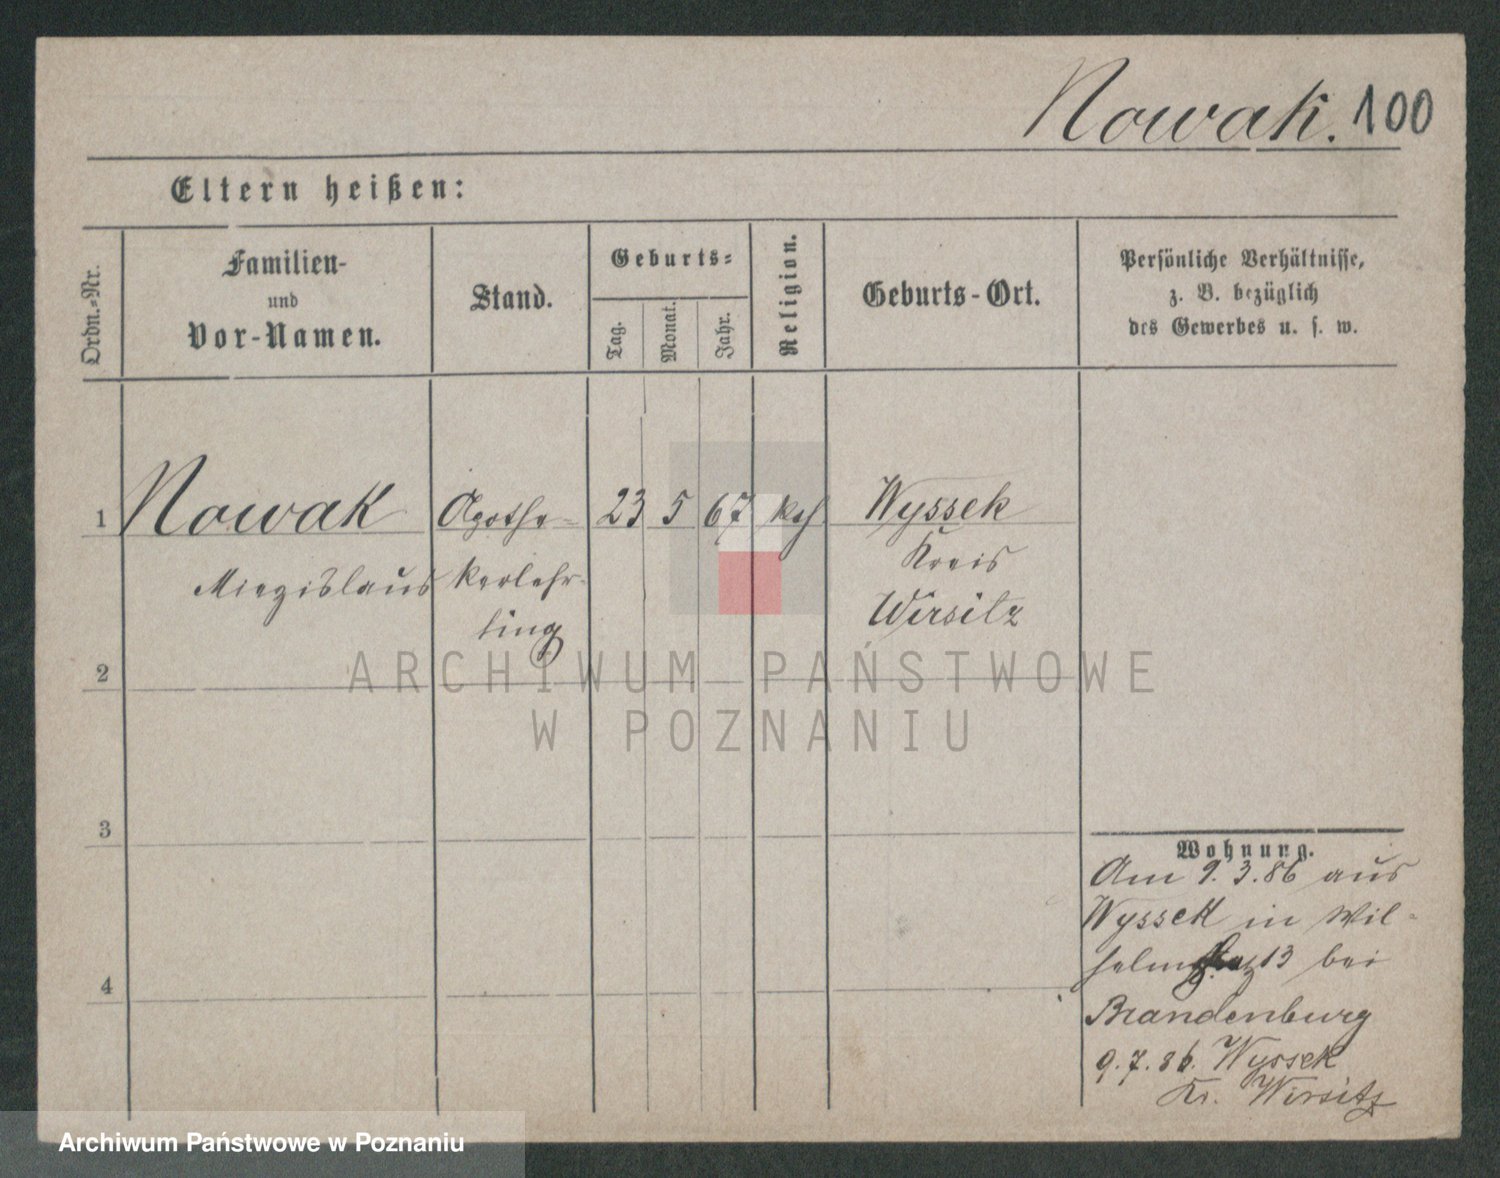 Nowak. 100
Eltern heißen:
Ordn.-Nr.
Familien-
und
Vor-Namen.
Stand.
Geburts-
Tag.
Monat.
Jahr.
Religion.
Geburts-Ort.
Persönliche Verhältnisse,
z. B. bezüglich
des Gewerbes u. s. w.
1 Nowak Apothe- 23 5 67 kath Wyssek
Kreis
Miezislaus kerlehr-
ling
Wirsitz
2
3
4
Wohnung.
Am 9.3.86 aus
Wyssek in Wil-
helmsplatz 13 bei
Brandenburg
9.7.86. Wyssek
Kr. Wirsitz
ARCHIWUM PAŃSTWOWE
W POZNANIU
Archiwum Państwowe w Poznaniu